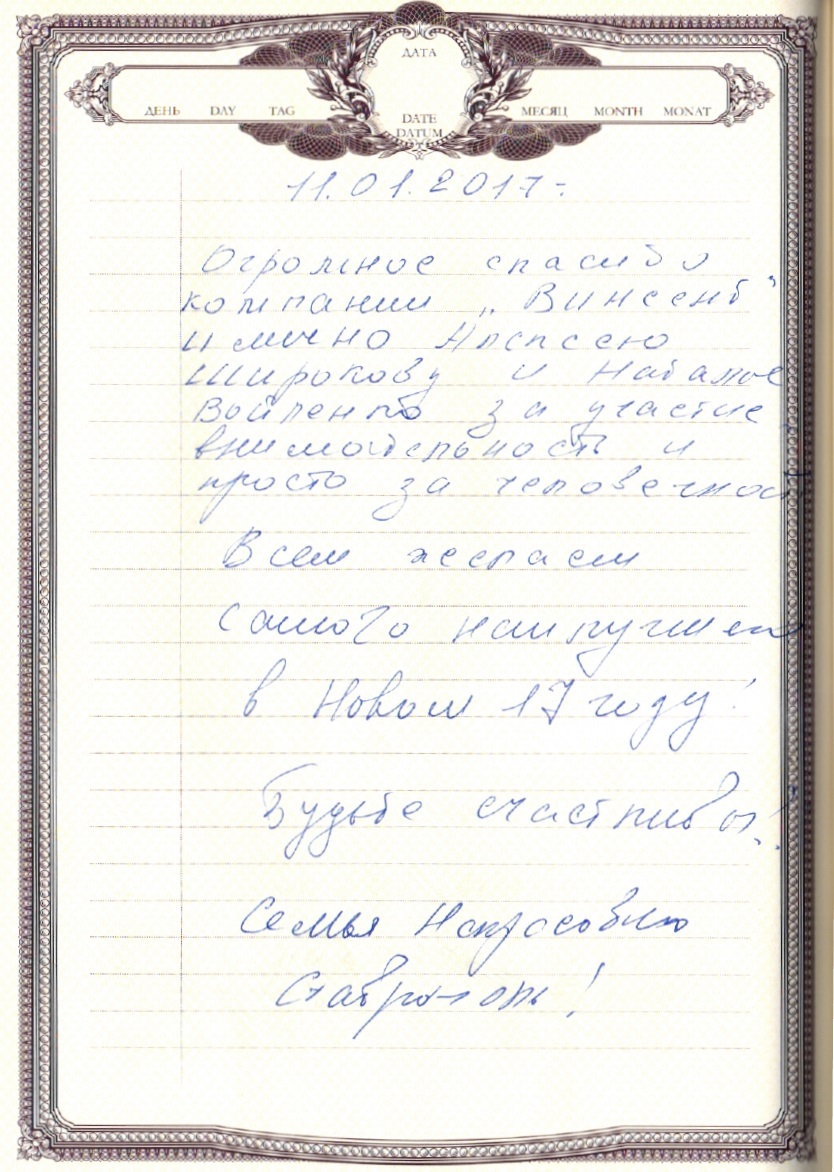 ДАТА
ДЕНЬ DAY TAG
DATE
DATUM
МЕСЯЦ MONTH MONAT
11.01.2017г.
Огромное спасибо
компании „Винсент"
и лично Алексею
Широкову и Наталье
Войленко за участие,
внимательность и
просто за человечност
Всем желаем
самого наилучшего
в Новом 17 году!
Будьте счастливы!
Семья
Ставрополь!